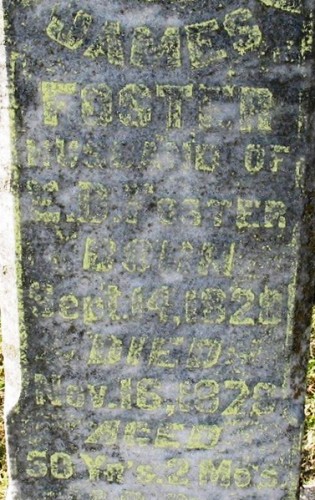 JAMES
FOSTER
HUSBAND OF
FOSTER
BORN
Sept. 14,
DIED
Nov. 16,
AGED
50 Yr's. 2 Mo's.